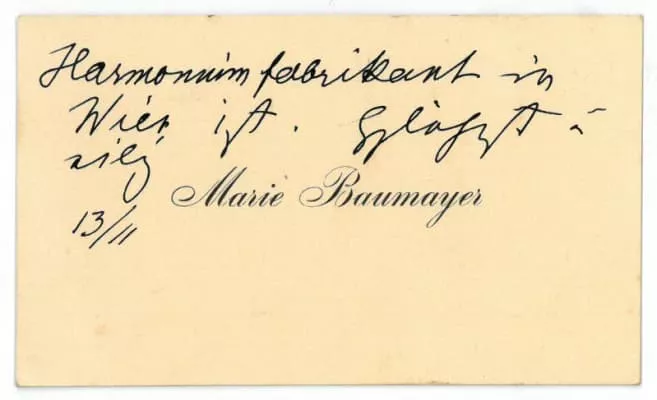 Harmonium fabrikant in
Wien ist.
eilig
Marie Baumayer
13/11